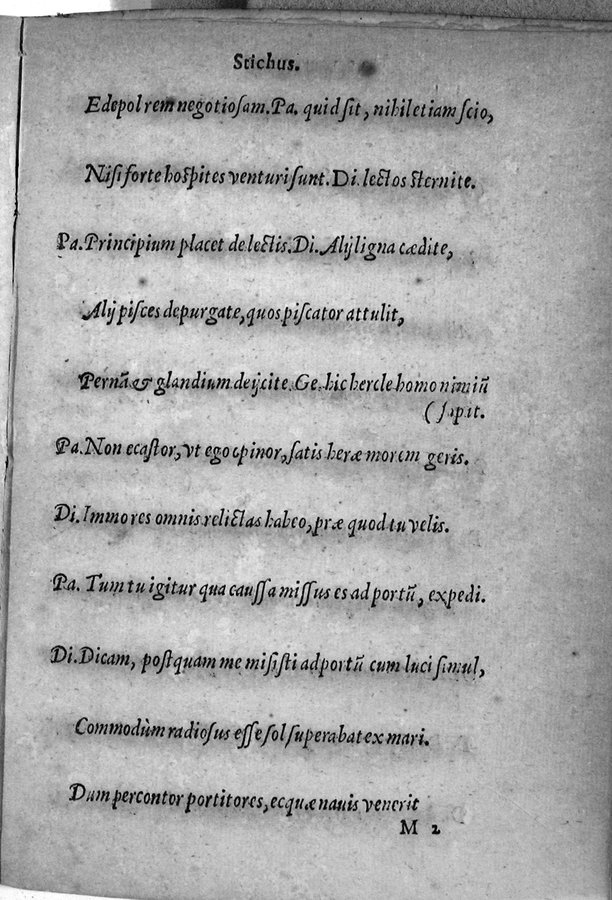 Stichus.
Edepol rem negotiosam. Pa. quid sit, nihil etiam scio,
Nisi forte hospites venturi sunt. Di. lectos sternite.
Pa. Principium placet de lectis. Di. Alij ligna cædite,
Alij pisces depurgate, quos piscator attulit,
Pernã & glandium deijcite. Ge. hic hercle homo nimiũ
(sapit.
Pa. Non ecastor, vt ego opinor, satis heræ morem geris.
Di. Immo res omnis relictas habeo, præ quod tu velis.
Pa. Tum tu igitur qua caussa missus es ad portũ, expedi.
Di. Dicam, postquam me misisti ad portũ cum luci simul,
Commodùm radiosus esse sol superabat ex mari.
Dum percontor portitores, ecquæ nauis venerit
M 2